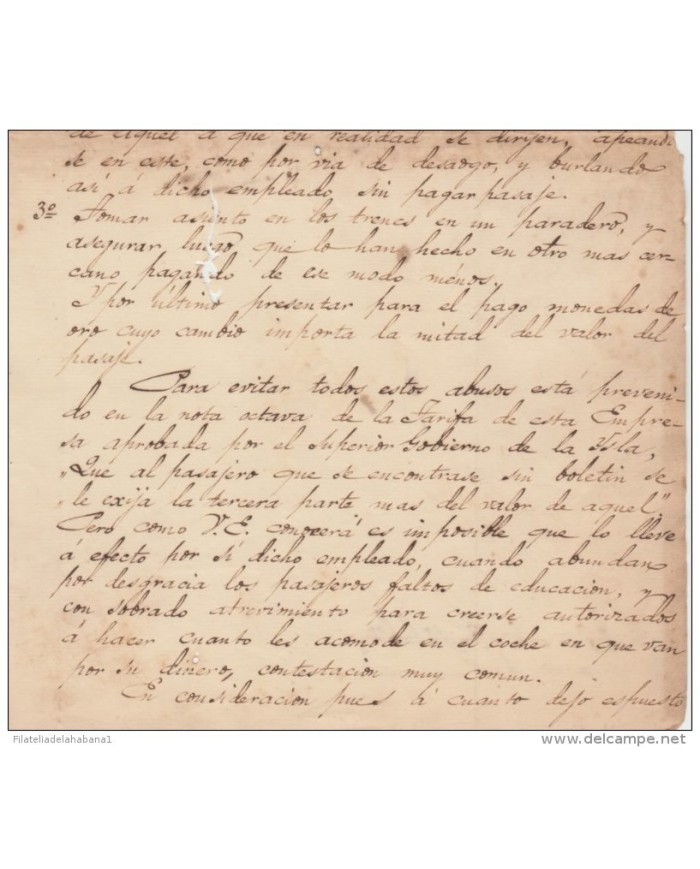 de aquel a que en realidad se dirijen, apeand
se en este, como por via de desaogo, y burlando
asi á dicho empleado, sin pagar pasaje.
3º Tomar asiento en los trenes en un paradero, y
asegurar, luego, que lo han hecho en otro mas cer-
cano pagando de ese modo ménos.
Y por último presentar para el pago monedas de
oro cuyo cambio importa la mitad del valor del
pasaje.
Para evitar todos estos abusos está preveni-
do en la nota octava de la Tarifa de esta Empre-
sa aprobada por el Superior Gobierno de la Ysla,
„Que al pasajero que se encontrase sin boletin se
„le exijá la tercera parte mas del valor de aquel."
Pero como V. E. conocerá es imposible que lo lleve
á efecto por si dicho empleado, cuando abundan
por desgracia los pasajeros faltos de educacion, y
con sobrado atrevimiento para creerse autorizados
á hacer cuanto les acomode en el coche en que van
por su dinero, contestacion muy comun.
En consideracion pues á cuanto dejo espuesto
Filateliadelahabana1
www.delcampe.net